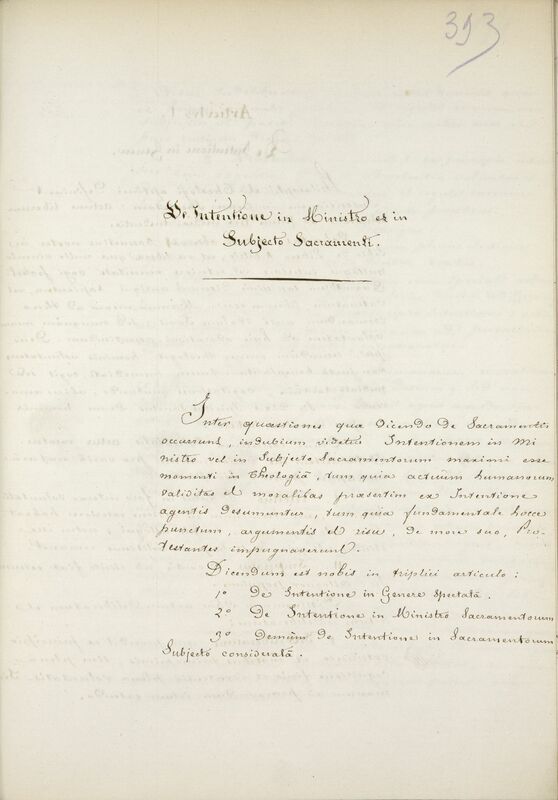 393
De Intentione in Ministro et in
Subjecto Sacramenti.
Inter quæstiones quæ Dicendo De Sacramentis
occurrunt, indubium videtur Intentionem in Mi
nistro vel in Subjecto Sacramentorum maximi esse
momenti in Theologiâ, tum quia actuum humanorum
validitas et moralitas præsertim ex Intentione
agentis desumuntur, tum quia fundamentale hocce
punctum, argumentis et risu, de more suo, Pro-
testantes impugnaverunt.
Dicendum est nobis in triplici articulo :
1º De Intentione in Genere spectatâ.
2º De Intentione in Ministro Sacramentorum
3º Demùm de Intentione in Sacramentorum
Subjecto consideratâ.